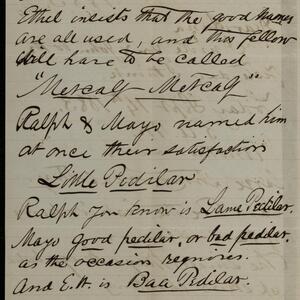 Ethel insists that the good names
are all used, and this fellow
will have to be called
"Metcalf Metcalf"
Ralph & Mayo named him
at once their satisfaction
Little Pedilar
Ralph you know is Lame Pedilar.
Mayo good pedilar, or bad pedilar
as the occasion requires.
And E.H. is Baa Pedilar.